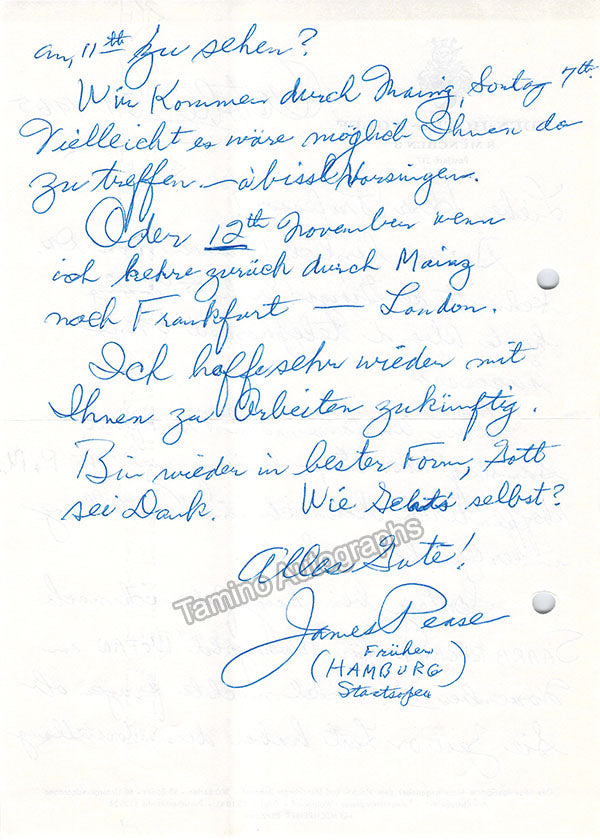 am, 11th zu sehen?
Wir Kommen durch Mainz, Sontag 7th.
Vielleicht es wäre möglich Ihnen da
zu treffen — a'bissl Vorsingen.
Oder 12th November wenn
ich kehre zurück durch Mainz
nach Frankfurt — London.
Ich hoffe sehr wieder mit
Ihnen zu Arbeiten zukünftig.
Bin wieder in bester Form, Gott
sei Dank. Wie Gehts selbst?
Alles Gute!
James Pease
Früher
(HAMBURG)
Staatsoper
Tamino Autographs